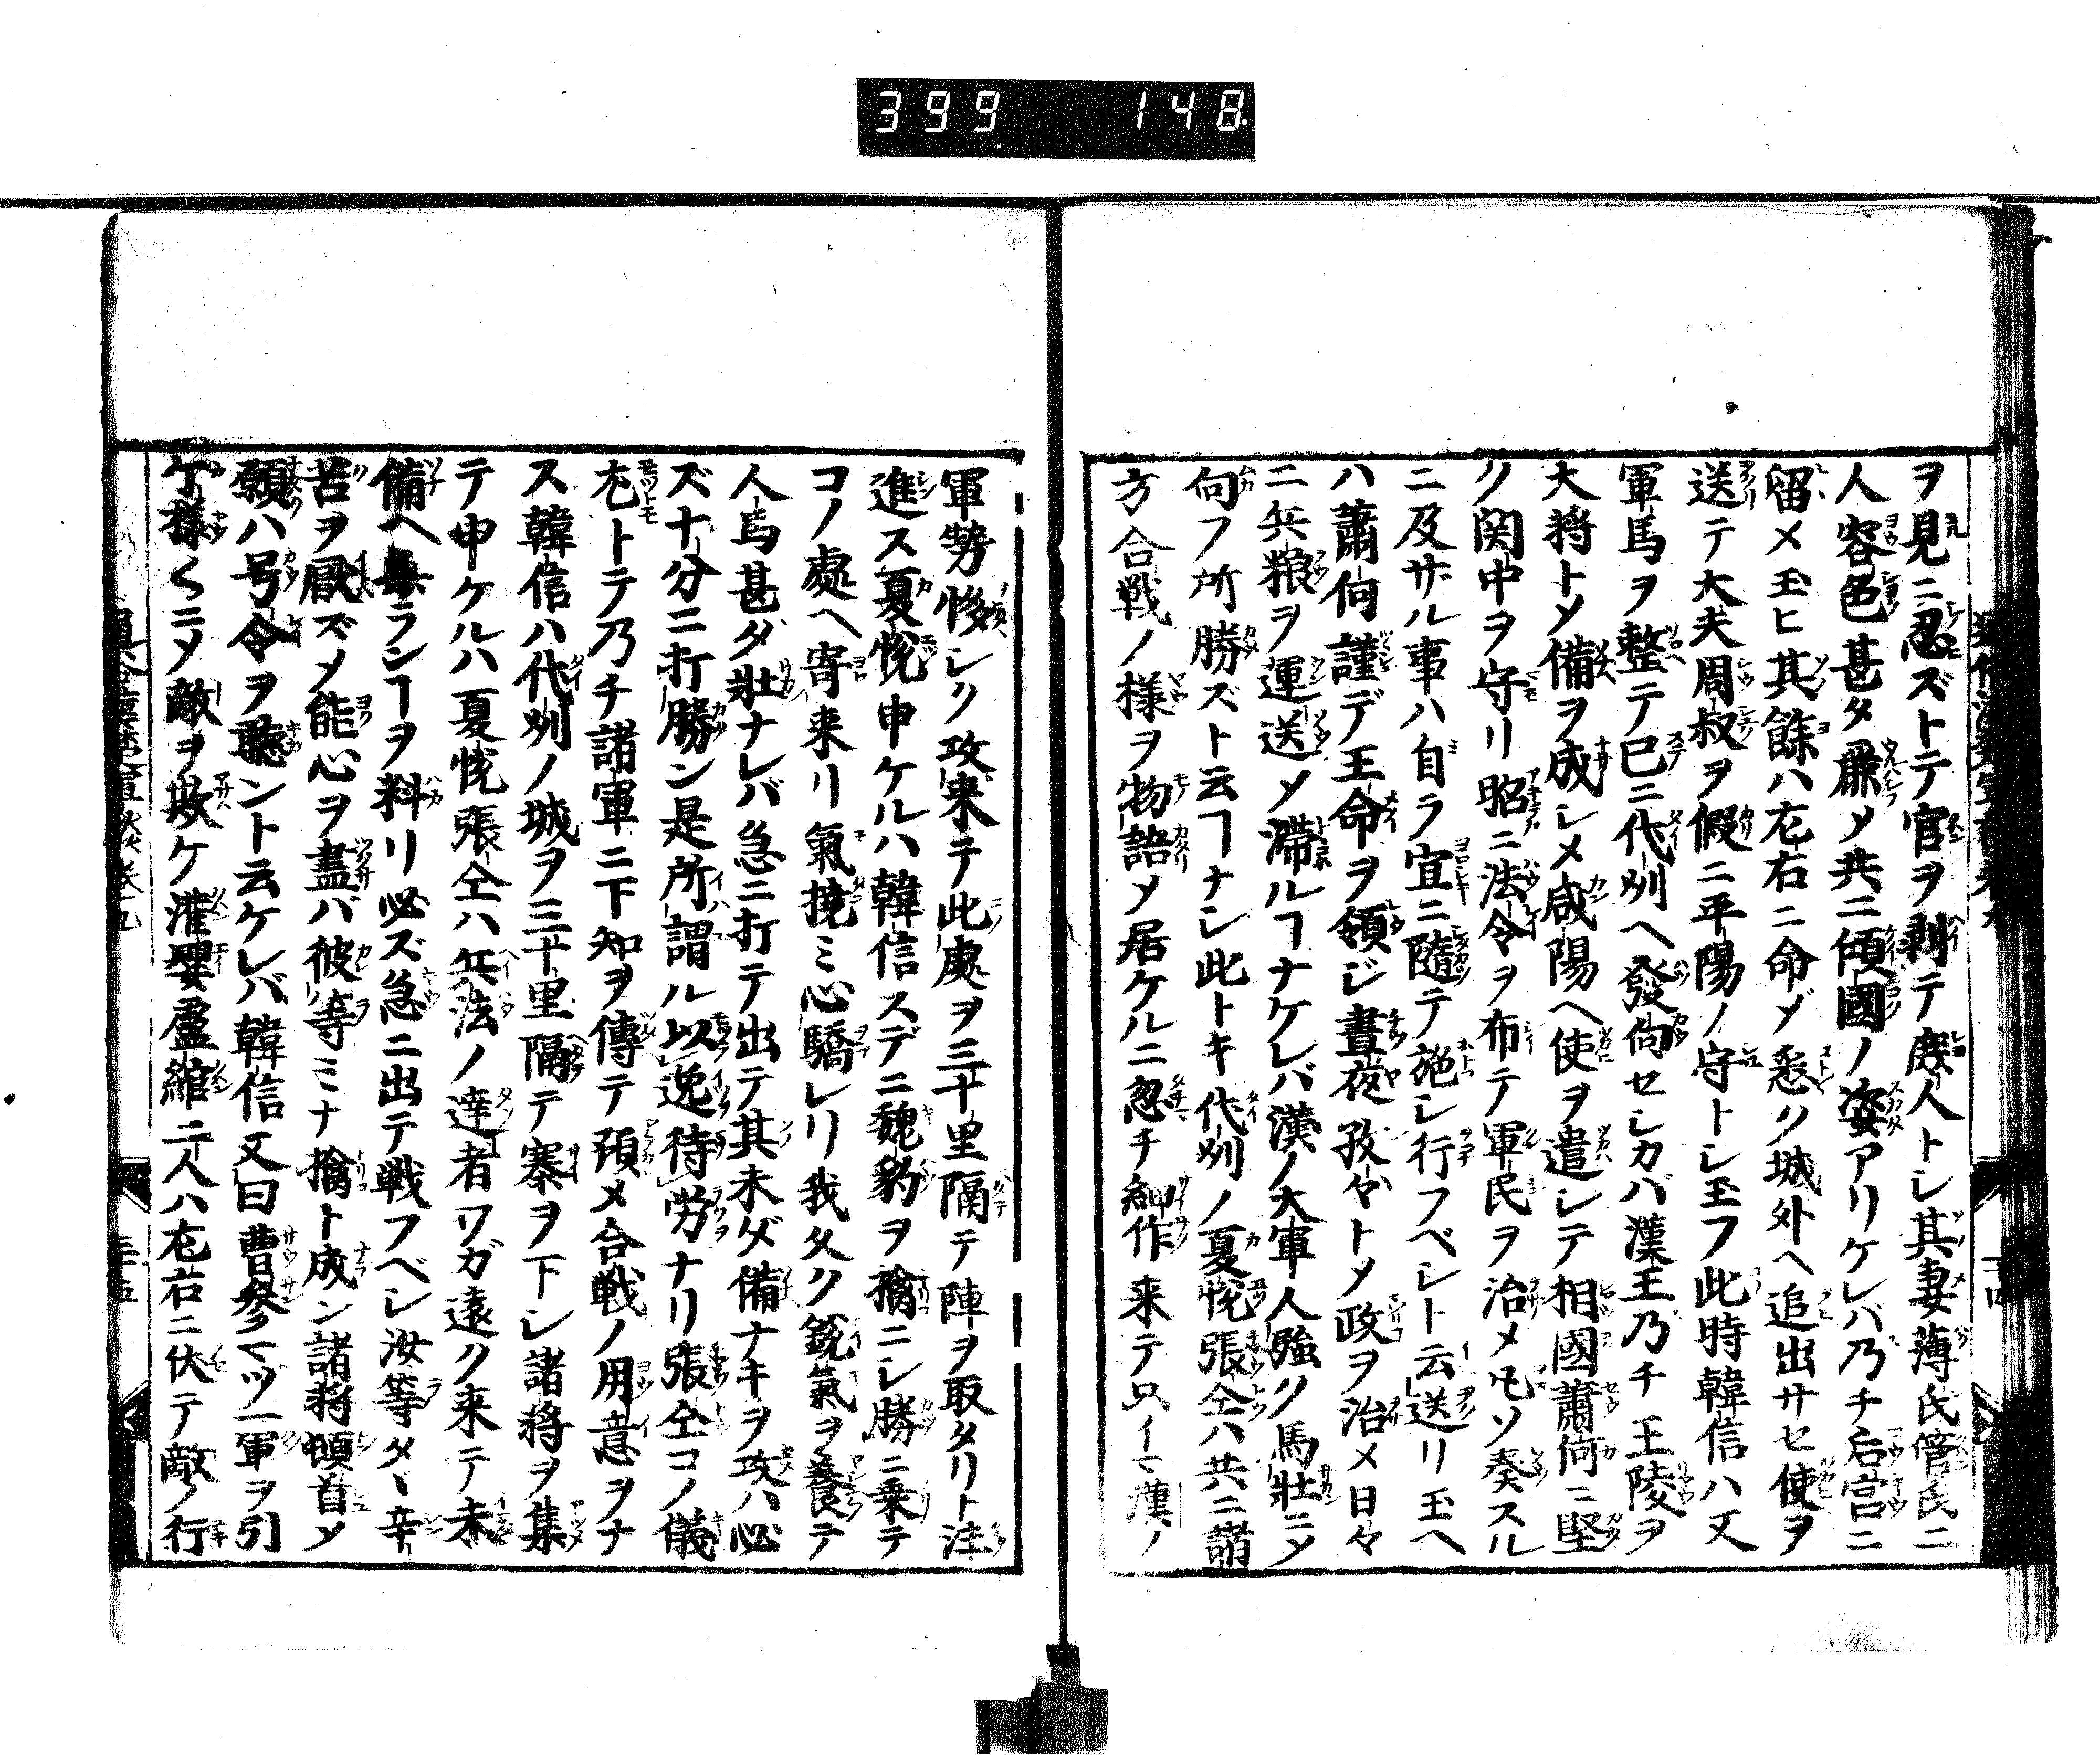 399 148
ヲ見ニ忍ズトテ官ヲ剥テ庶人トシ其妻薄氏管氏二
人容色甚タ麁メ共ニ傾國ノ姿アリケレバ乃チ后宮ニ
留メ玉ヒ其餘ハ左右ニ命ジ悉ク城外ヘ追出サセ使ヲ
送テ大夫周叔ヲ假ニ平陽ノ守トシ玉フ此時韓信ハ又
軍馬ヲ整テ已ニ代州ヘ發向セシカバ漢王乃チ王陵ヲ
大将トメ備ヲ成シメ咸陽ヘ使ヲ遣シテ相國蕭何ニ堅
ク関中ヲ守リ昭ニ法令ヲ布テ軍民ヲ治メ凡ソ奏スル
ニ及ザル事ハ自ラ宜ニ隨テ施シ行フベシト云送リ玉ヘ
ハ蕭何謹デ王命ヲ領ジ晝夜孜々トメ政ヲ治メ日々
ニ兵粮ヲ運送メ滞ルヿナケレバ漢ノ大軍人強ク馬壮ニメ
向フ所勝ズト云ヿナシ此トキ代州ノ夏悦張仝ハ共ニ諸
方合戦ノ様ヲ物語メ居ケルニ忽チ細作来テ只イマ漢ノ
軍勢夥シク攻来テ此處ヲ三十里隔テ陣ヲ取タリト注
進ス夏悦申ケルハ韓信スデニ魏豹ヲ擒ニシ勝ニ乗テ
コノ處ヘ寄来リ氣撓ミ心驕レリ我久ク鋭氣ヲ養テ
人馬甚ダ壮ナレバ急ニ打テ出テ其未ダ備ナキヲ攻ハ必
ズ十分ニ打勝ン是所謂ル以逸待労ナリ張仝コノ儀
尤トテ乃チ諸軍ニ下知ヲ傳テ預メ合戦ノ用意ヲナ
ス韓信ハ代州ノ城ヲ三十里隔テ寨ヲ下シ諸将ヲ集
テ申ケルハ夏悦張仝ハ兵法ノ達者ワガ遠ク来テ未
備ヘ毋ランヿヲ料リ必ズ急ニ出テ戦フベシ汝等タヽ辛
苦ヲ厭ズメ能心ヲ盡バ彼等ミナ擒ト成ン諸将頓首メ
願ハ号令ヲ聴ント云ケレバ韓信又曰曹參マヅ一軍ヲ引
ケ様〱ニメ敵ヲ欺ケ灌嬰盧綰二人ハ左右ニ伏テ敵ノ行